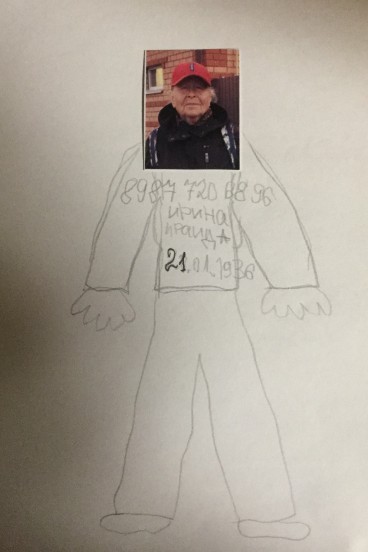 8987 720 6896
ИРИНА
ИРАИДА
21.01.1936